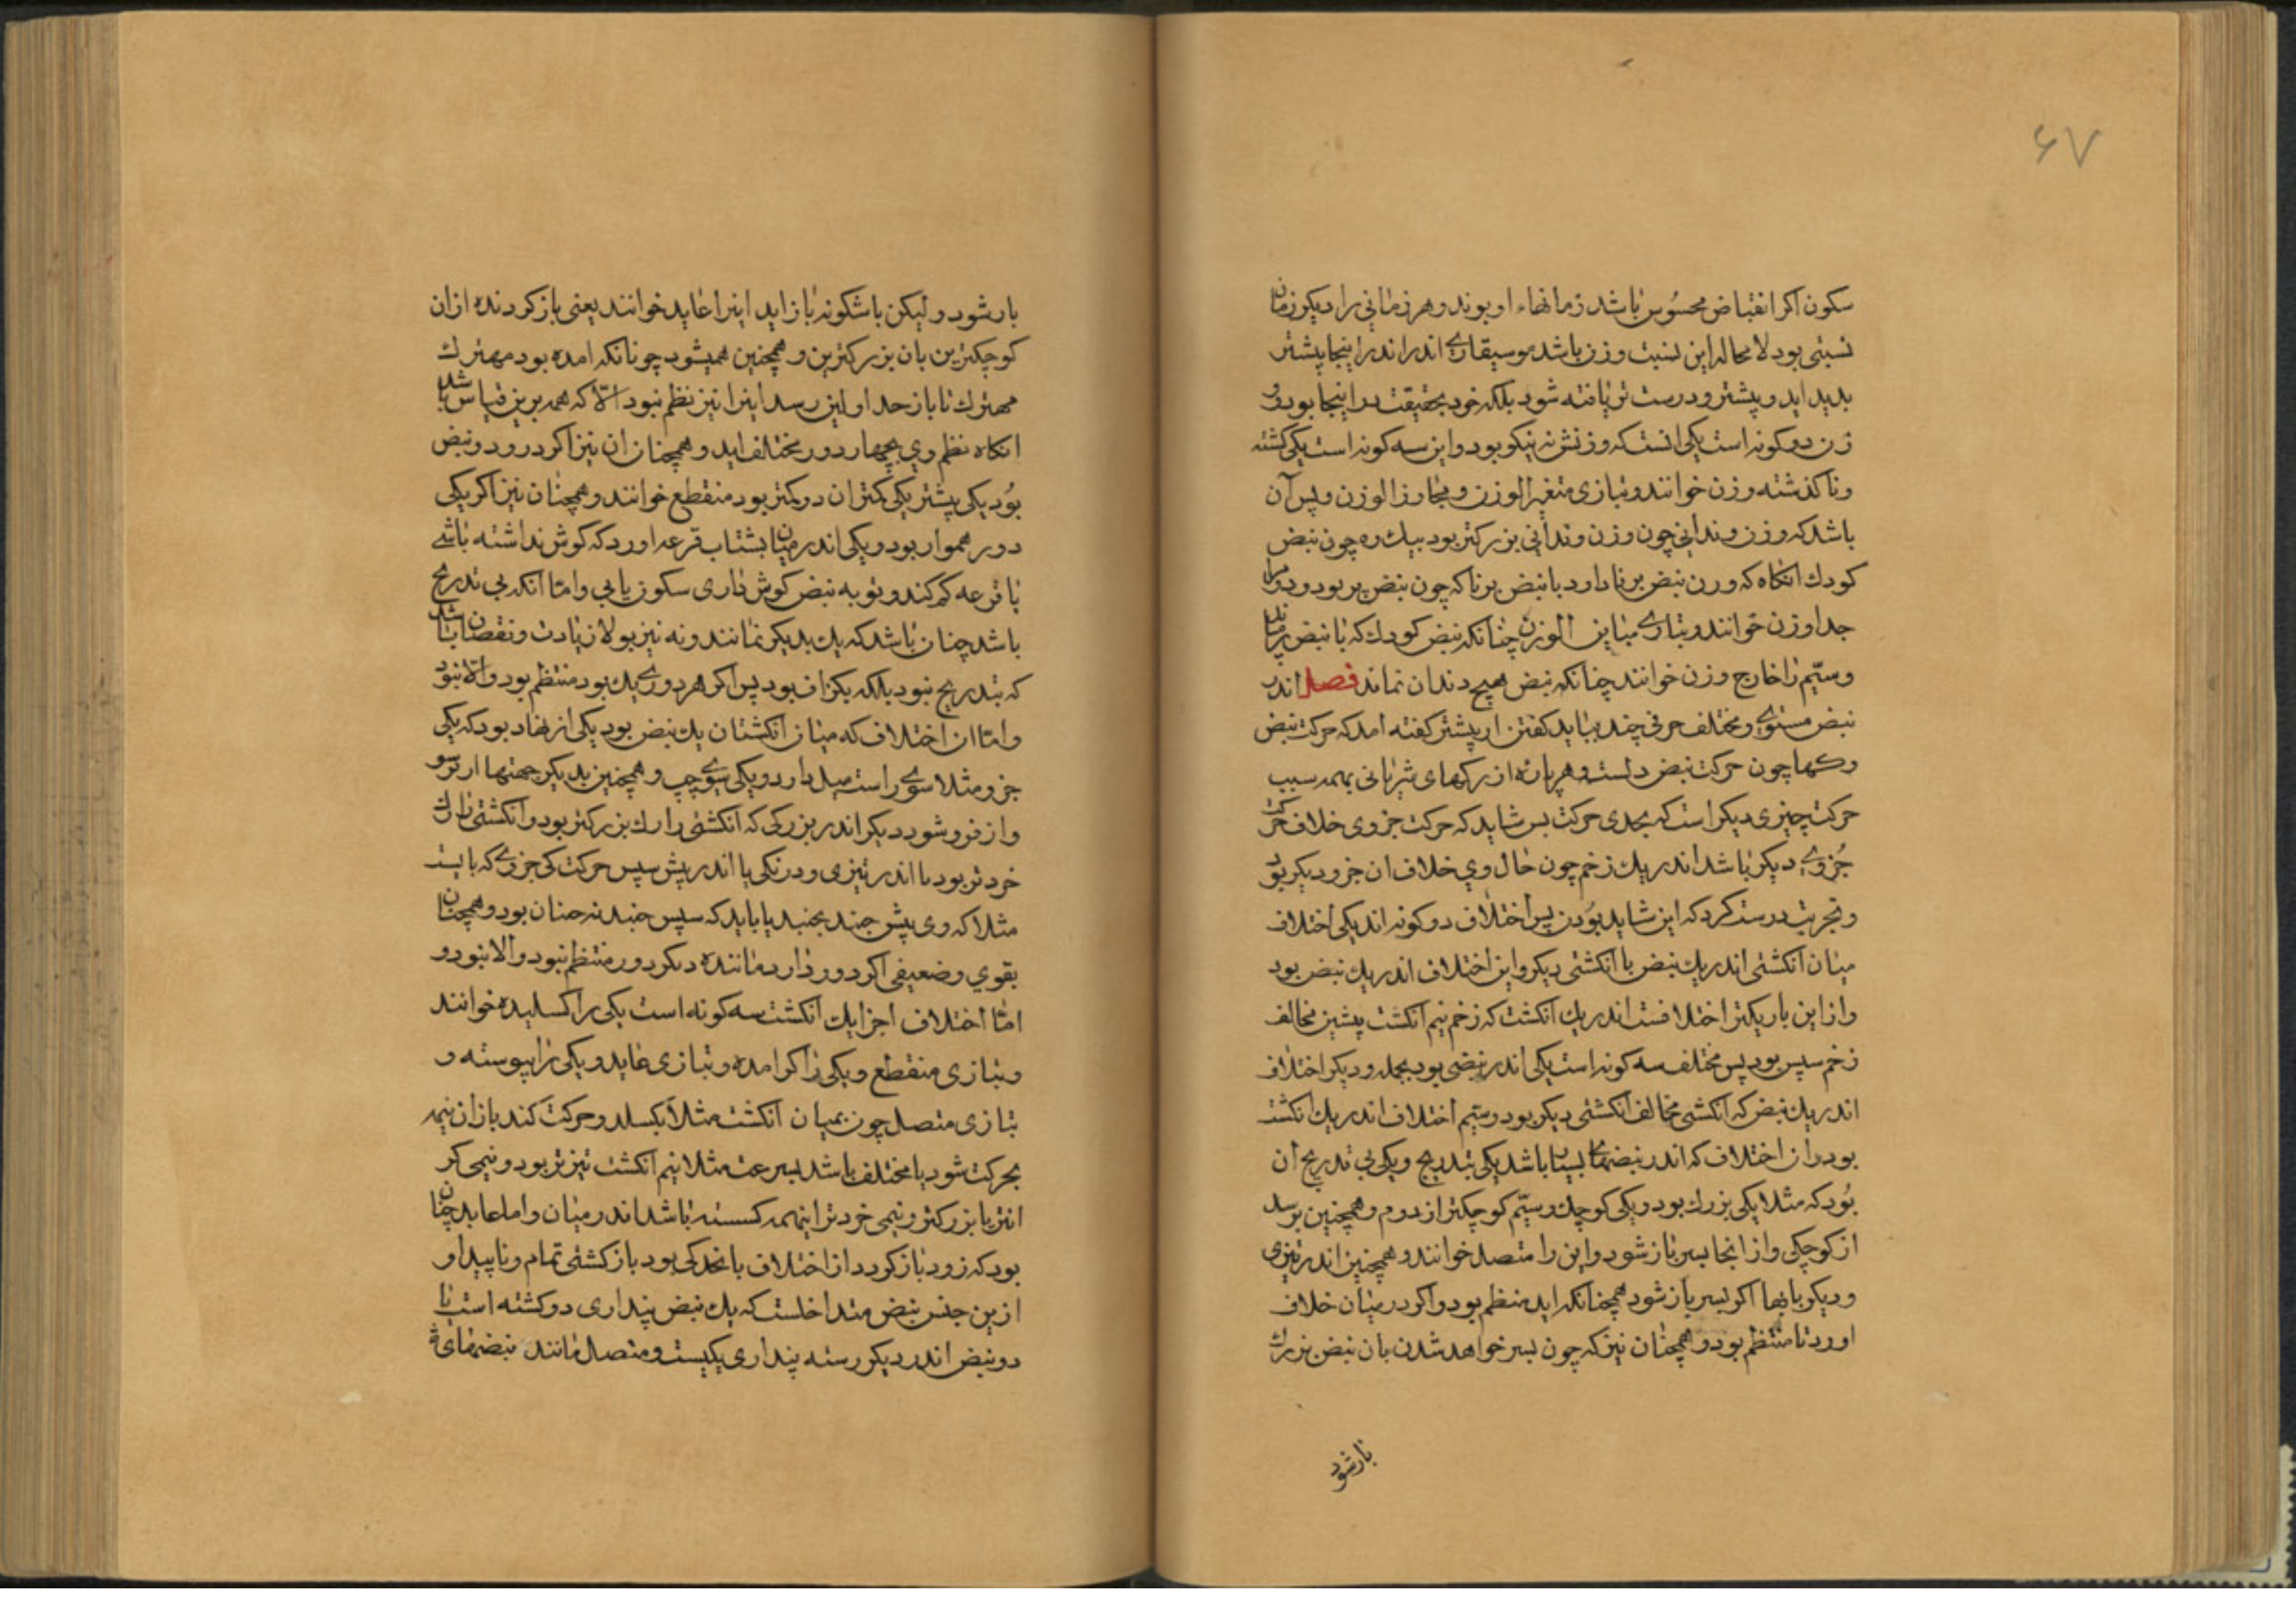 ۶۷
سکون اکر انقباض محسوس باشد زمانهاء او بوند و هر زمانی را دیکر زمان
نسبتی بود لا محاله این نسبت وزن باشد موسیقاری اندر اندر اینجا پیشتر
بدید اید و پیشتر و درست تر یافته شود بلکه خود بحقیقت در اینجا بود و
زن دو کونه است یکی انست که وزنش نه نیکو بود و این سه کونه است یکی کشته
وناکذشته وزن خوانند و بتازی متغیر الوزن و مجاوز الوزن و پس آن
باشد که وزن وندانی چون وزن وندانی بزرکتر بود بیک ره چون نبض
کودك انکاه که ورن نبض برنا دارد یا نبض برنا که چون نبض پیر بود و دوم را
جدا وزن خوانند و بتازی مباین الوزن چنانکه نبض کودك که با نبض پیر ماند
و سیّم را خارج وزن خوانند چنانکه نبض هیچ دندان نماند فصل اندر
نبض مستوی و مختلف حرفی چند بباید کفتن از پیشتر کفته امد که حرکت نبض
رکها چون حرکت نبض دلست و هر پاره از رکهای شریانی بهمه سبب
حرکت چیزی دیکر است که بحدی حرکت بس شاید که حرکت جزوی خلاف حرکت
جُزوی دیکر باشد اندر یك زخم چون حال وي خلاف ان جزو دیکر بود
و تجربت درست کرد که این شاید بوُدن پس اختلاف دو کونه اند یکی اختلاف
میان انکشتی اندر یك نبض با انکشتی دیکر و این اختلاف اندر یك نبض بود
واز این باریکتر اختلافست اندر یك انکشت که زخم نیم انکشت پیشین مخالف
زخم سپس بود پس مختلف سه کونه است یکی اندر نبضی بود بجمله و دیکر اختلاف
اندر یك نبض که انکشتی مخالف انکشتی دیکر بود و سیم اختلاف اندر یك انکشت
بود و ان اختلاف که اندر نبضهای بسیار باشد یکی بتدریج و یکی بی تدریج ان
بُود که مثلا یکی بزرك بود و یکی کوچك و سیّم کوچکتر از دوم و همچنین برسد
از کوچکی واز انجا بسر باز شود و این را متصل خوانند و همچنین اندر تیزی
و دیکر بابها اکر بسر باز شود همچنانکه اید منظم بود و اکر در میان خلاف
اورد نا منتظم بود و همچنان نیز که چون بسر خواهد شدن بان نبض بزرك
بار شود
بار شود و لیکن باشکونه باز اید اینرا عاید خوانند یعنی باز کردنده ازان
کوچکترین بان بزرکترین و همچنین همیشود چونانکه امده بود مهترك
مهترك تا باز حد اولین رسد اینرا نیز نظم نبود الّا که همه برین قیاس باشد
انکاه نظم وي بچهار دور مختلف اید و همچنان ان نیز اکر درود و نبض
بوُد یکی پیشتر یکی کمتر ان در کمتر بود منقطع خوانند و همچنان نیز اکر یکی
دور هموار بود و یکی اندر میان بشتاب قرعه اورد که کوش نداشته باشی
یا قرعه کم کند و تو به نبض کوش داری سکون یابی و امّا انکه بی تدریج
باشد چنان باشد که یك بدیکر نمانند و نه نیز بولا زیادت و نقصان باشد
که بتدریج نبود بلکه بکزاف بود پس اکر هر دوری یك بود منتظم بود و الّا نبود
و امّا ان اختلاف که میان انکشتان یك نبض بود یکی از نهاد بود که یکی
جزو مثلا سوی راست میل دارد و یکی سوی چپ و همچنین بدیکر جهتها از برسو
و از فرو شود دیکر اندر بزرکی که انکشتی را رك بزرکتر بود و انکشتی را رك
خردتر بود یا اندر تیزی و درنکی یا اندر پیش سپس حرکت کی جزوی که بایست
مثلا که وی پیش جنبد بجنبد یا باید که سپس جنبد نه چنان بود و همچنان
بقوي و ضعیفی اکر دور دارد مانندهٔ دیکر دور منتظم نبود والا نبود و
امّا اختلاف اجزا یك انکشت سه کونه است یکی را کسلیده خوانند
وبتازی منقطع ویکی را کرامده وبتازی عاید و یکی را پیوسته و
بتازی متصل چون بمیان انکشت مثلاً بکسلد و حرکت کند باز ان نیمه
بحرکت شود یا مختلف باشد بسرعت مثلا نیم انکشت تیزتر بود و نیمی کر
انتر یا بزرکتر و نیمی خردتر اینهمه کسسته باشد اندر میان و اما عاید چنان
بود که زود باز کردد از اختلاف باندکی بود باز کشتی تمام و ناپیدا و
ازین جنس نبض متداخلست که یك نبض پنداری دو کشته است یا
دو نبض اندر دیکر رسته پنداری یکیست و متصل مانند نبضهای